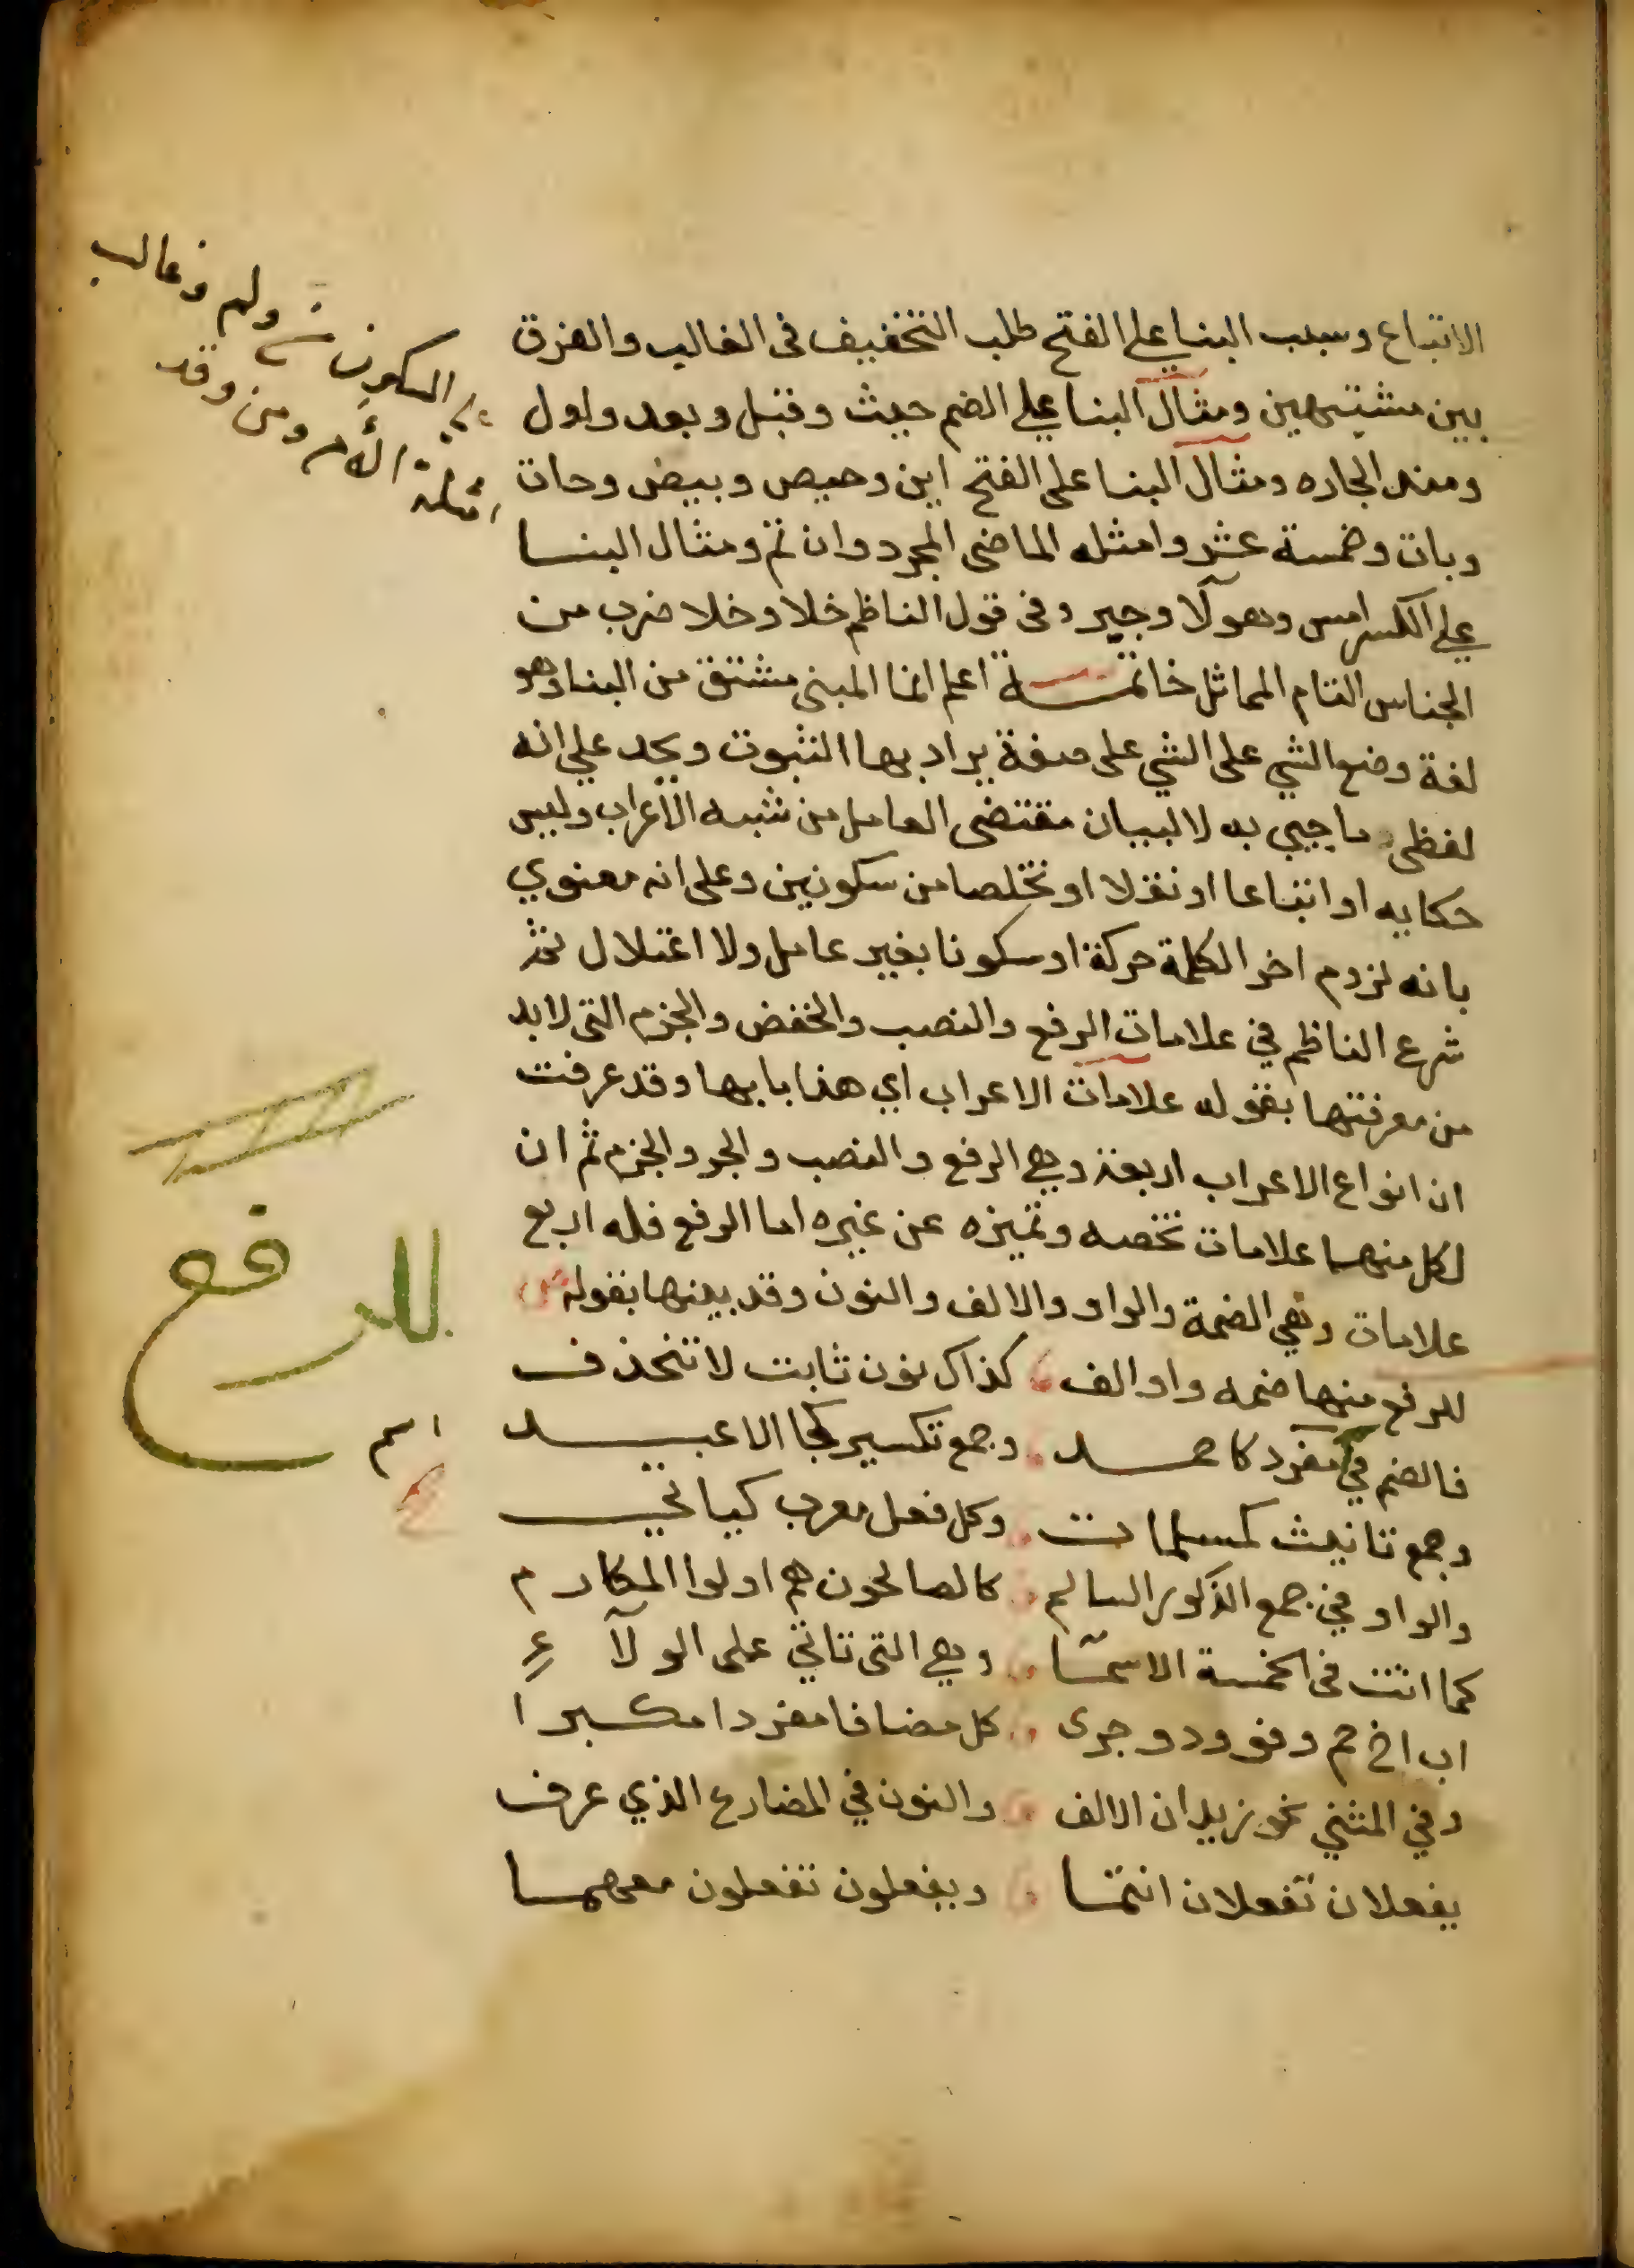 الاتباع وسبب البنا علي الفتح طلب التخفيف فى الغالب والفرق
بين مشتبهين ومثال البنا علي الضم حيث وقبل وبعد واول
ومنذ الجاره ومثال البنا على الفتح اين وحيص وبيص وحات
وبات وخمسة عشر وامثله الماضى المجرد وان ثم ومثال البنا
علي الكسر امس وهولآ وجير وفى قول الناظم خلا وخلا ضرب من
الجناس التام المماثل خاتمة اعلم انما المبنى مشتق من البنا وهو
لغة وضع الشي على الشي على صفة يراد بها الثبوت ويحد علي انه
لفظى ما جيي به لا لبيان مقتضى العامل من شبه الاعراب وليس
حكايه او اتباعا او نقلا او تخلصا من سكونين وعلى انه معنوي
بانه لزوم اخر الكلمة حركة او سكونا بغير عامل ولا اعتلال ثم
شرع الناظم في علامات الرفع والنصب والخفض والجزم التى لابد
من معرفتها بقوله علامات الاعراب اي هذا بابها وقد عرفت
ان انواع الاعراب اربعة وهي الرفع والنصب والجر والجزم ثم ان
لكل منها علامات تخصه وتميزه عن غيره اما الرفع فله اربع
علامات وهي الضمة والواو والالف والنون وقد بينها بقوله ص
للرفع منها ضمه واو الف كذاك نون ثابت لا تنحذف
فالضم في مفرد كاحمد وجمع تكسير كجا الاعبد
وجمع تانيث كمسلمات وكل فعل معرب كياتي
والواو في جمع الذكور السالم كالصالحون هم اولوا المكارم
كما اتت فى الخمسة الاسمآ وهي التى تاتي على الولآء
اب اخ حم وفو وذو جرى كل مضافا مفردا مكبرا
وفي المثني نحو زيدان الالف والنون في المضارع الذي عرف
يفعلان تفعلان انتما ويفعلون تفعلون معهما
السكون ولم وغالب
امثلة الأمر ومن وقد
للرفع
اسم